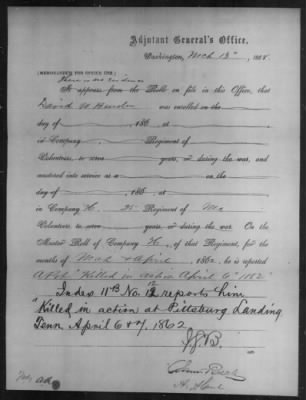 Adjutant General's Office,
Washington, Mch 13", 1868.
[MEMORANDUM FOR OFFICE USE.]
There is no evidence
It appears from the Rolls on file in this Office, that
David W. was enrolled on the
day of , 186 , at
in Company , Regiment of
Volunteers, to serve years, or during the war, and
mustered into service as a on the
day of , 186 , at
in Company K, 25 Regiment of Mo
Volunteers, to serve years, or during the war. On the
Muster Roll of Company K, of that Regiment, for the
months of Mch & April, 1862, he is reported
"Killed in action April 6" 1862"
Index No. 12 reports him
"Killed in action at Pittsburg Landing
Tenn April 6 & 7, 1862